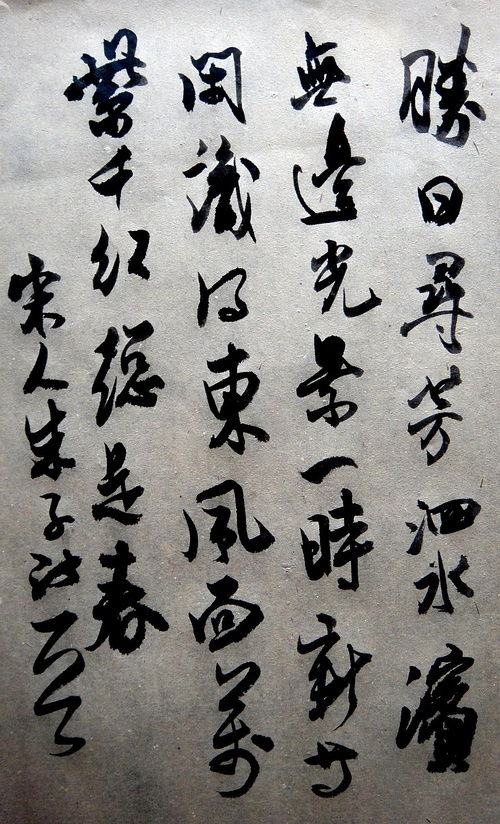 勝日尋芳泗水濱
無邊光景一時新等
閑識得東風面萬
紫千紅總是春
宋人朱子詩